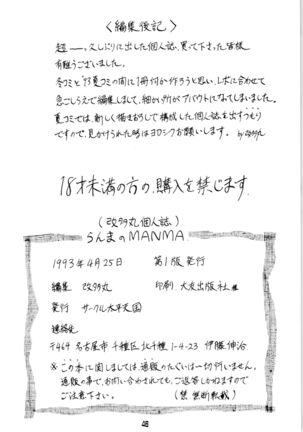 〈編集後記〉
超──、久しぶりに出した個人誌、買って下さった皆様
有難うございました。
冬コミと'93夏コミの間に1冊付か作ろうと思い、レボに合わせて
急ごしらえで編集しまして、細かい所がアバウトになってしまいました。
夏コミでは、新しく描きおろしで構成した個人誌を出すつもり
ですので、見かけられた時はヨロシクお願いします。 by改多丸
18才未満の方の購入を禁じます
(改多丸個人誌)
らんまのMANMA
1993年4月25日 第1版発行
編集 改多丸 印刷 大友出版社 様
発行 サークル太平天国
連絡先
〒464 名古屋市千種区北千種1-4-23 伊藤伸治
※この本に関しましては、通販のたぐいは一切行いません。
通販の事で、お問い合わされても、ご返答しかねますので
ご注意下さい。 (禁 無断転載)
48